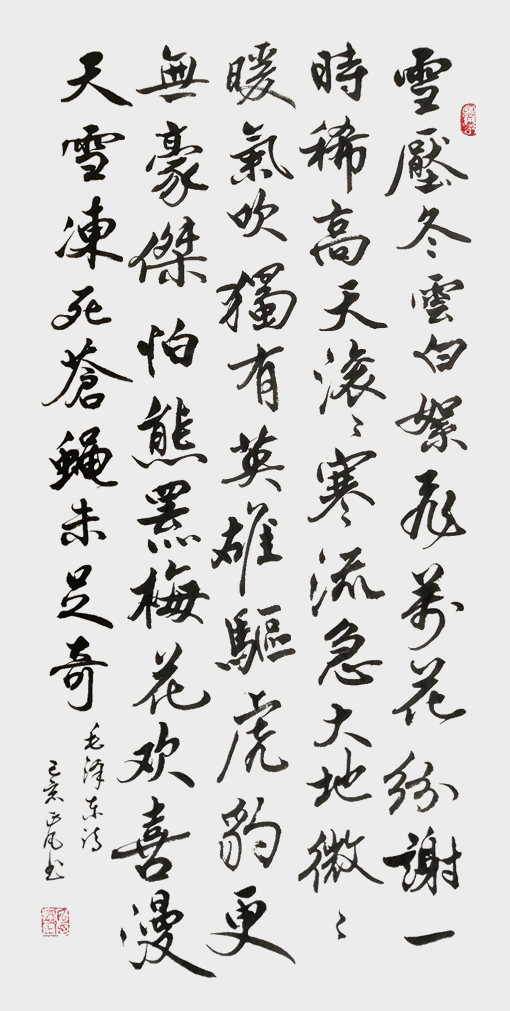 雪壓冬雲白絮飛萬花紛謝一
時稀高天滾〻寒流急大地微〻
暖氣吹獨有英雄驅虎豹更
無豪傑怕熊羆梅花欢喜漫
天雪凍死蒼蠅未足奇
毛泽东诗
己亥书